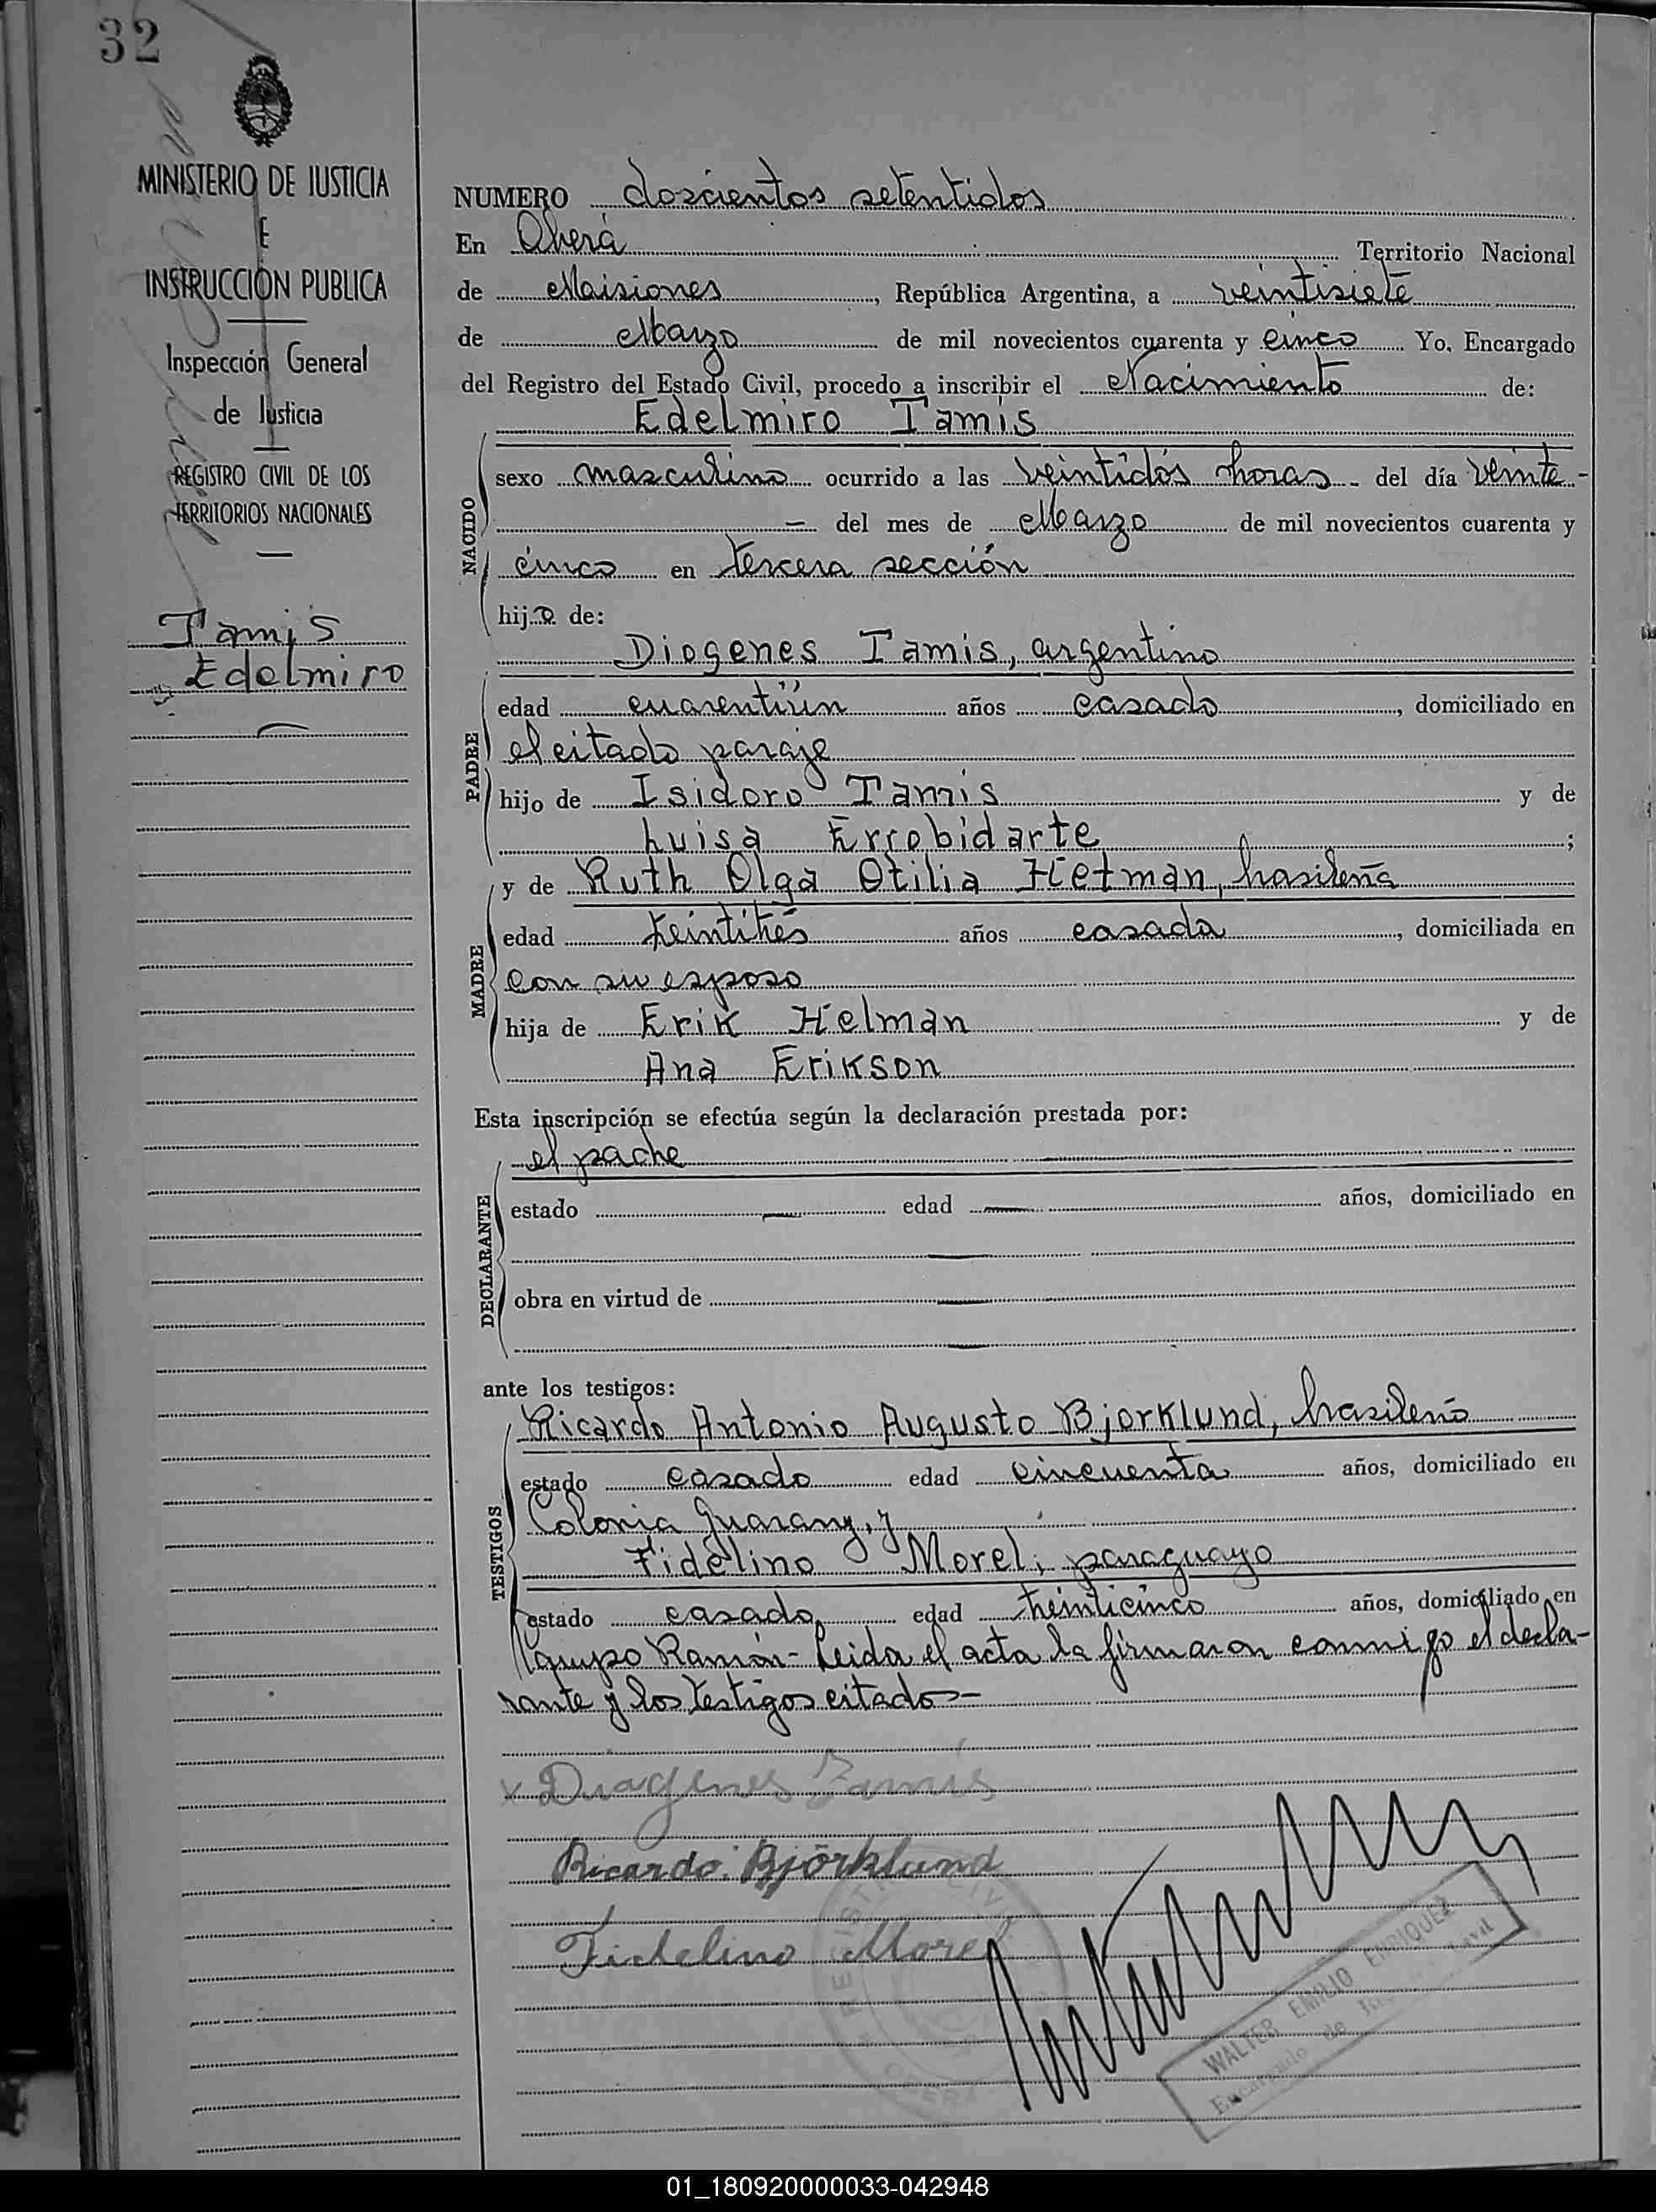 32
MINISTERIO DE JUSTICIA
E
INSTRUCCIÓN PUBLICA
Inspección General
de Justicia
REGISTRO CIVIL DE LOS
TERRITORIOS NACIONALES
Tamis
Edelmiro
NUMERO doscientos setentidos
En Oberá Territorio Nacional
de Misiones, República Argentina, a veintisiete
de Marzo de mil novecientos cuarenta y cinco Yo, Encargado
del Registro del Estado Civil, procedo a inscribir el Nacimiento de:
Edelmiro Tamis
NACIDO
sexo masculino ocurrido a las veintidós horas - del día veinte -
— del mes de Marzo de mil novecientos cuarenta y
cinco en tercera sección
hijo de:
Diogenes Tamis, argentino
PADRE
edad cuarentiún años casado, domiciliado en
el citado paraje
hijo de Isidoro Tamis y de
Luisa Errobidarte ;
MADRE
y de Ruth Olga Otilia Hetman, brasileña
edad treintitrés años casada, domiciliada en
con su esposo
hija de Erik Helman y de
Ana Erikson
Esta inscripción se efectúa según la declaración prestada por:
DECLARANTE
el padre
estado — edad — años, domiciliado en
—
obra en virtud de —
—
ante los testigos:
TESTIGOS
Ricardo Antonio Augusto Bjorklund, brasileño
estado casado edad cincuenta años, domiciliado en
Colonia Guarany, y
Fidelino Morel, paraguayo
estado casado edad treinticinco años, domiciliado en
grupo Ramón - Leida el acta la firmaron conmigo el decla-
rante y los testigos citados -
x Diogenes Tamis
Ricardo Björklund
Fidelino Morel
REGISTRO CIVIL
WALTER EMILIO ENRIQUEZ
Encargado de
01_180920000033-042948